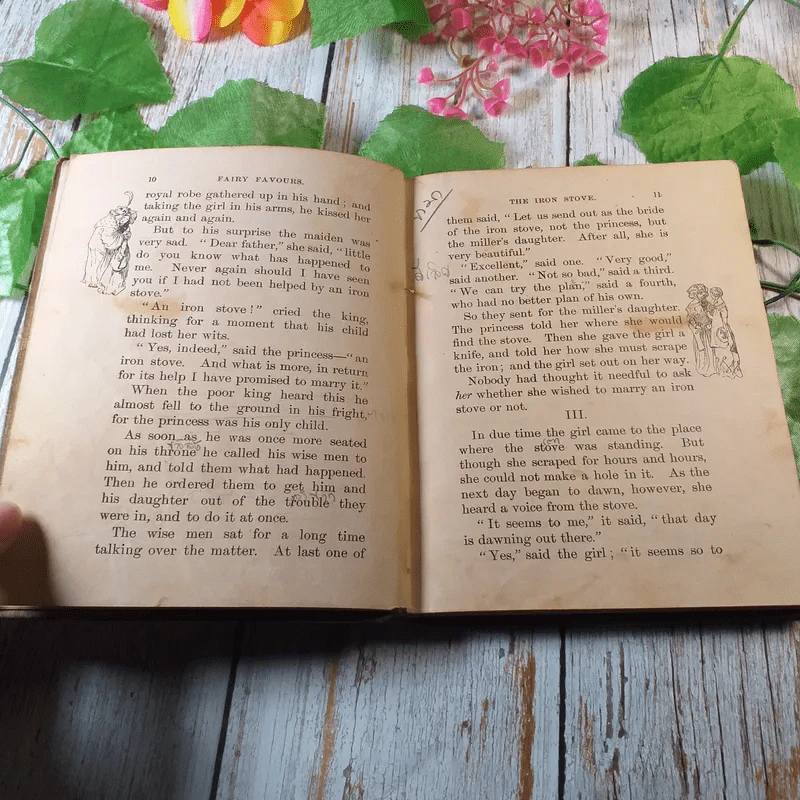 10 FAIRY FAVOURS.
royal robe gathered up in his hand; and
taking the girl in his arms, he kissed her
again and again.
But to his surprise the maiden was
very sad. “Dear father,” she said, “little
do you know what has happened to
me. Never again should I have seen
you if I had not been helped by an iron
stove.”
“An iron stove!” cried the king,
thinking for a moment that his child
had lost her wits.
“Yes, indeed,” said the princess—“an
iron stove. And what is more, in return
for its help I have promised to marry it.”
When the poor king heard this he
almost fell to the ground in his fright,
for the princess was his only child.
As soon as he was once more seated
on his throne he called his wise men to
him, and told them what had happened.
Then he ordered them to get him and
his daughter out of the trouble they
were in, and to do it at once.
The wise men sat for a long time
talking over the matter. At last one of
THE IRON STOVE. 11
them said, “Let us send out as the bride
of the iron stove, not the princess, but
the miller’s daughter. After all, she is
very beautiful.”
“Excellent,” said one. “Very good,”
said another. “Not so bad,” said a third.
“We can try the plan,” said a fourth,
who had no better plan of his own.
So they sent for the miller’s daughter.
The princess told her where she would
find the stove. Then she gave the girl a
knife, and told her how she must scrape
the iron; and the girl set out on her way.
Nobody had thought it needful to ask
her whether she wished to marry an iron
stove or not.
III.
In due time the girl came to the place
where the stove was standing. But
though she scraped for hours and hours,
she could not make a hole in it. As the
next day began to dawn, however, she
heard a voice from the stove.
“It seems to me,” it said, “that day
is dawning out there.”
“Yes,” said the girl; “it seems so to